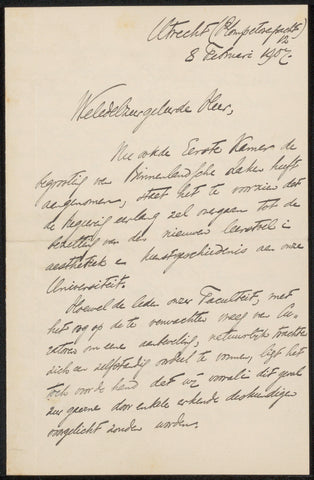 Utrecht (Plompetorengracht
12
8 Februari 1907.
Weledelzeergeleerde Heer,
Nu ook de Eerste Kamer de
begrooting van Binnenlandsche Zaken heeft
aangenomen, staat het te voorzien dat
de regeering eerlang zal overgaan tot de
bezetting van den nieuwen leerstoel in
aesthetiek en kunstgeschiedenis aan onze
Universiteit.
Hoewel de leden onzer Faculteit, met
het oog op de te verwachten vraag van Cu-
ratoren om eene aanbeveling, natuurlijk trachten
zich een zelfstandig oordeel te vormen, ligt het
toch voor de hand dat wij vooral in dit geval
zeer gaarne door enkele erkende deskundigen
voorgelicht zouden worden.